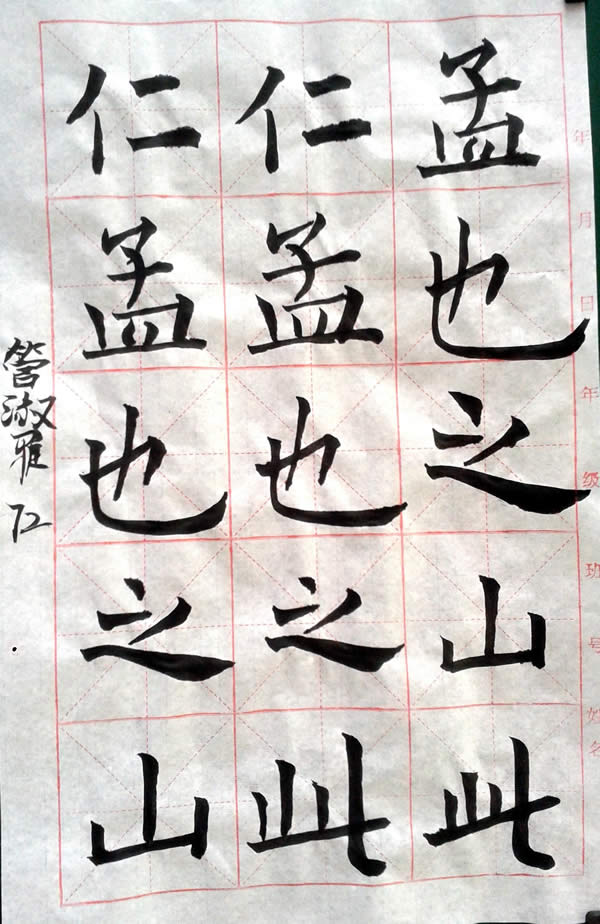 孟也之山此
仁孟也之此
仁孟也之山
年月日年级班号姓名
管淑雅 72